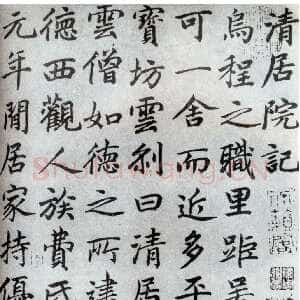 清居院記
烏程之職里距吴
可一舍而近多平
寶坊雲剎曰清居
雲僧如德之所建
德西觀人族費氏
元年閒居家持優